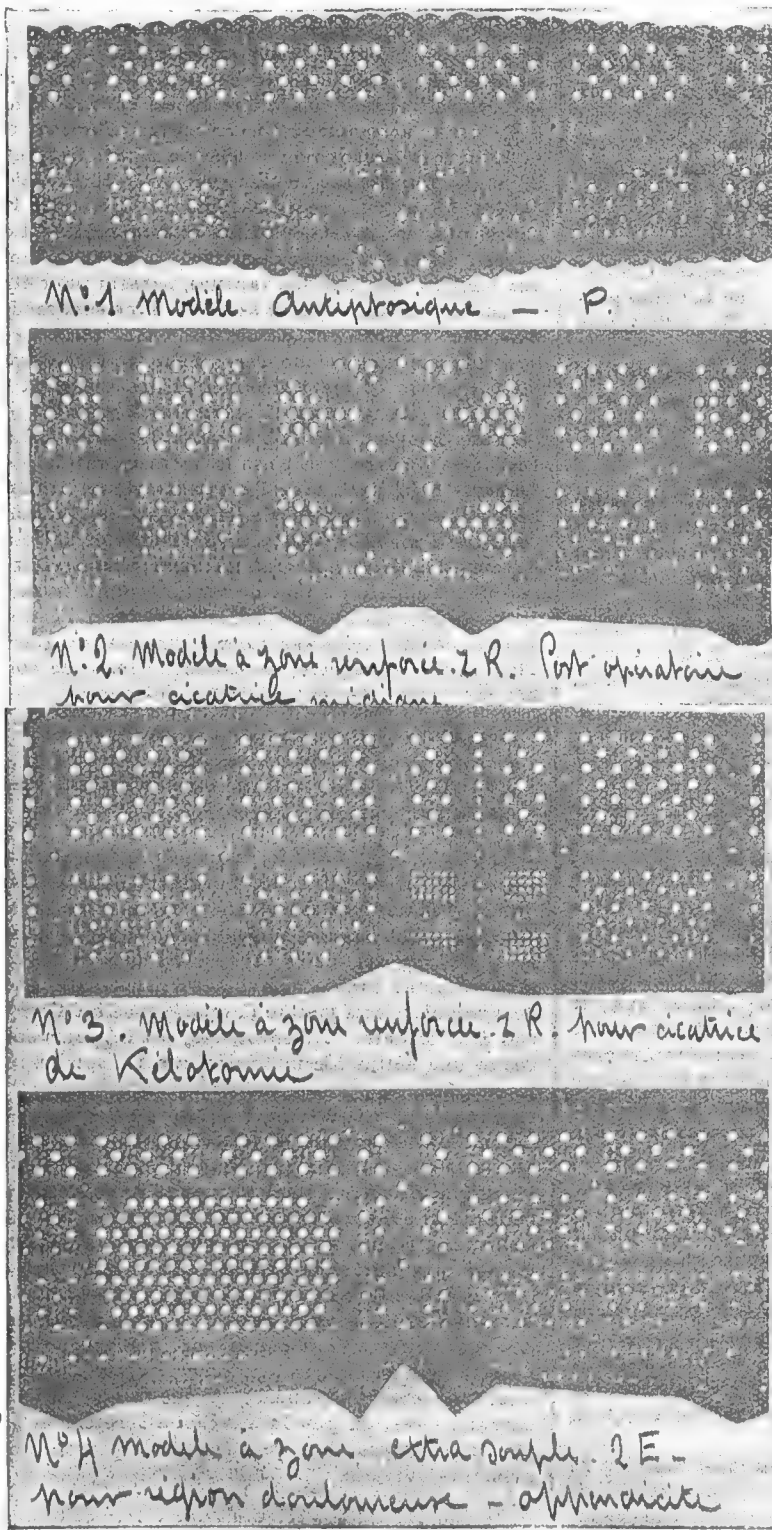 N° 1 Modèle Antiptosique — P.
N° 2. Modèle à zone renforcée. Z R. Post opératoire
pour cicatrice médiane
N° 3. Modèle à zone renforcée. Z R. pour cicatrice
de Kélotomie
N° 4 modèle à zone extra souple. Z E -
pour région douloureuse - appendicite